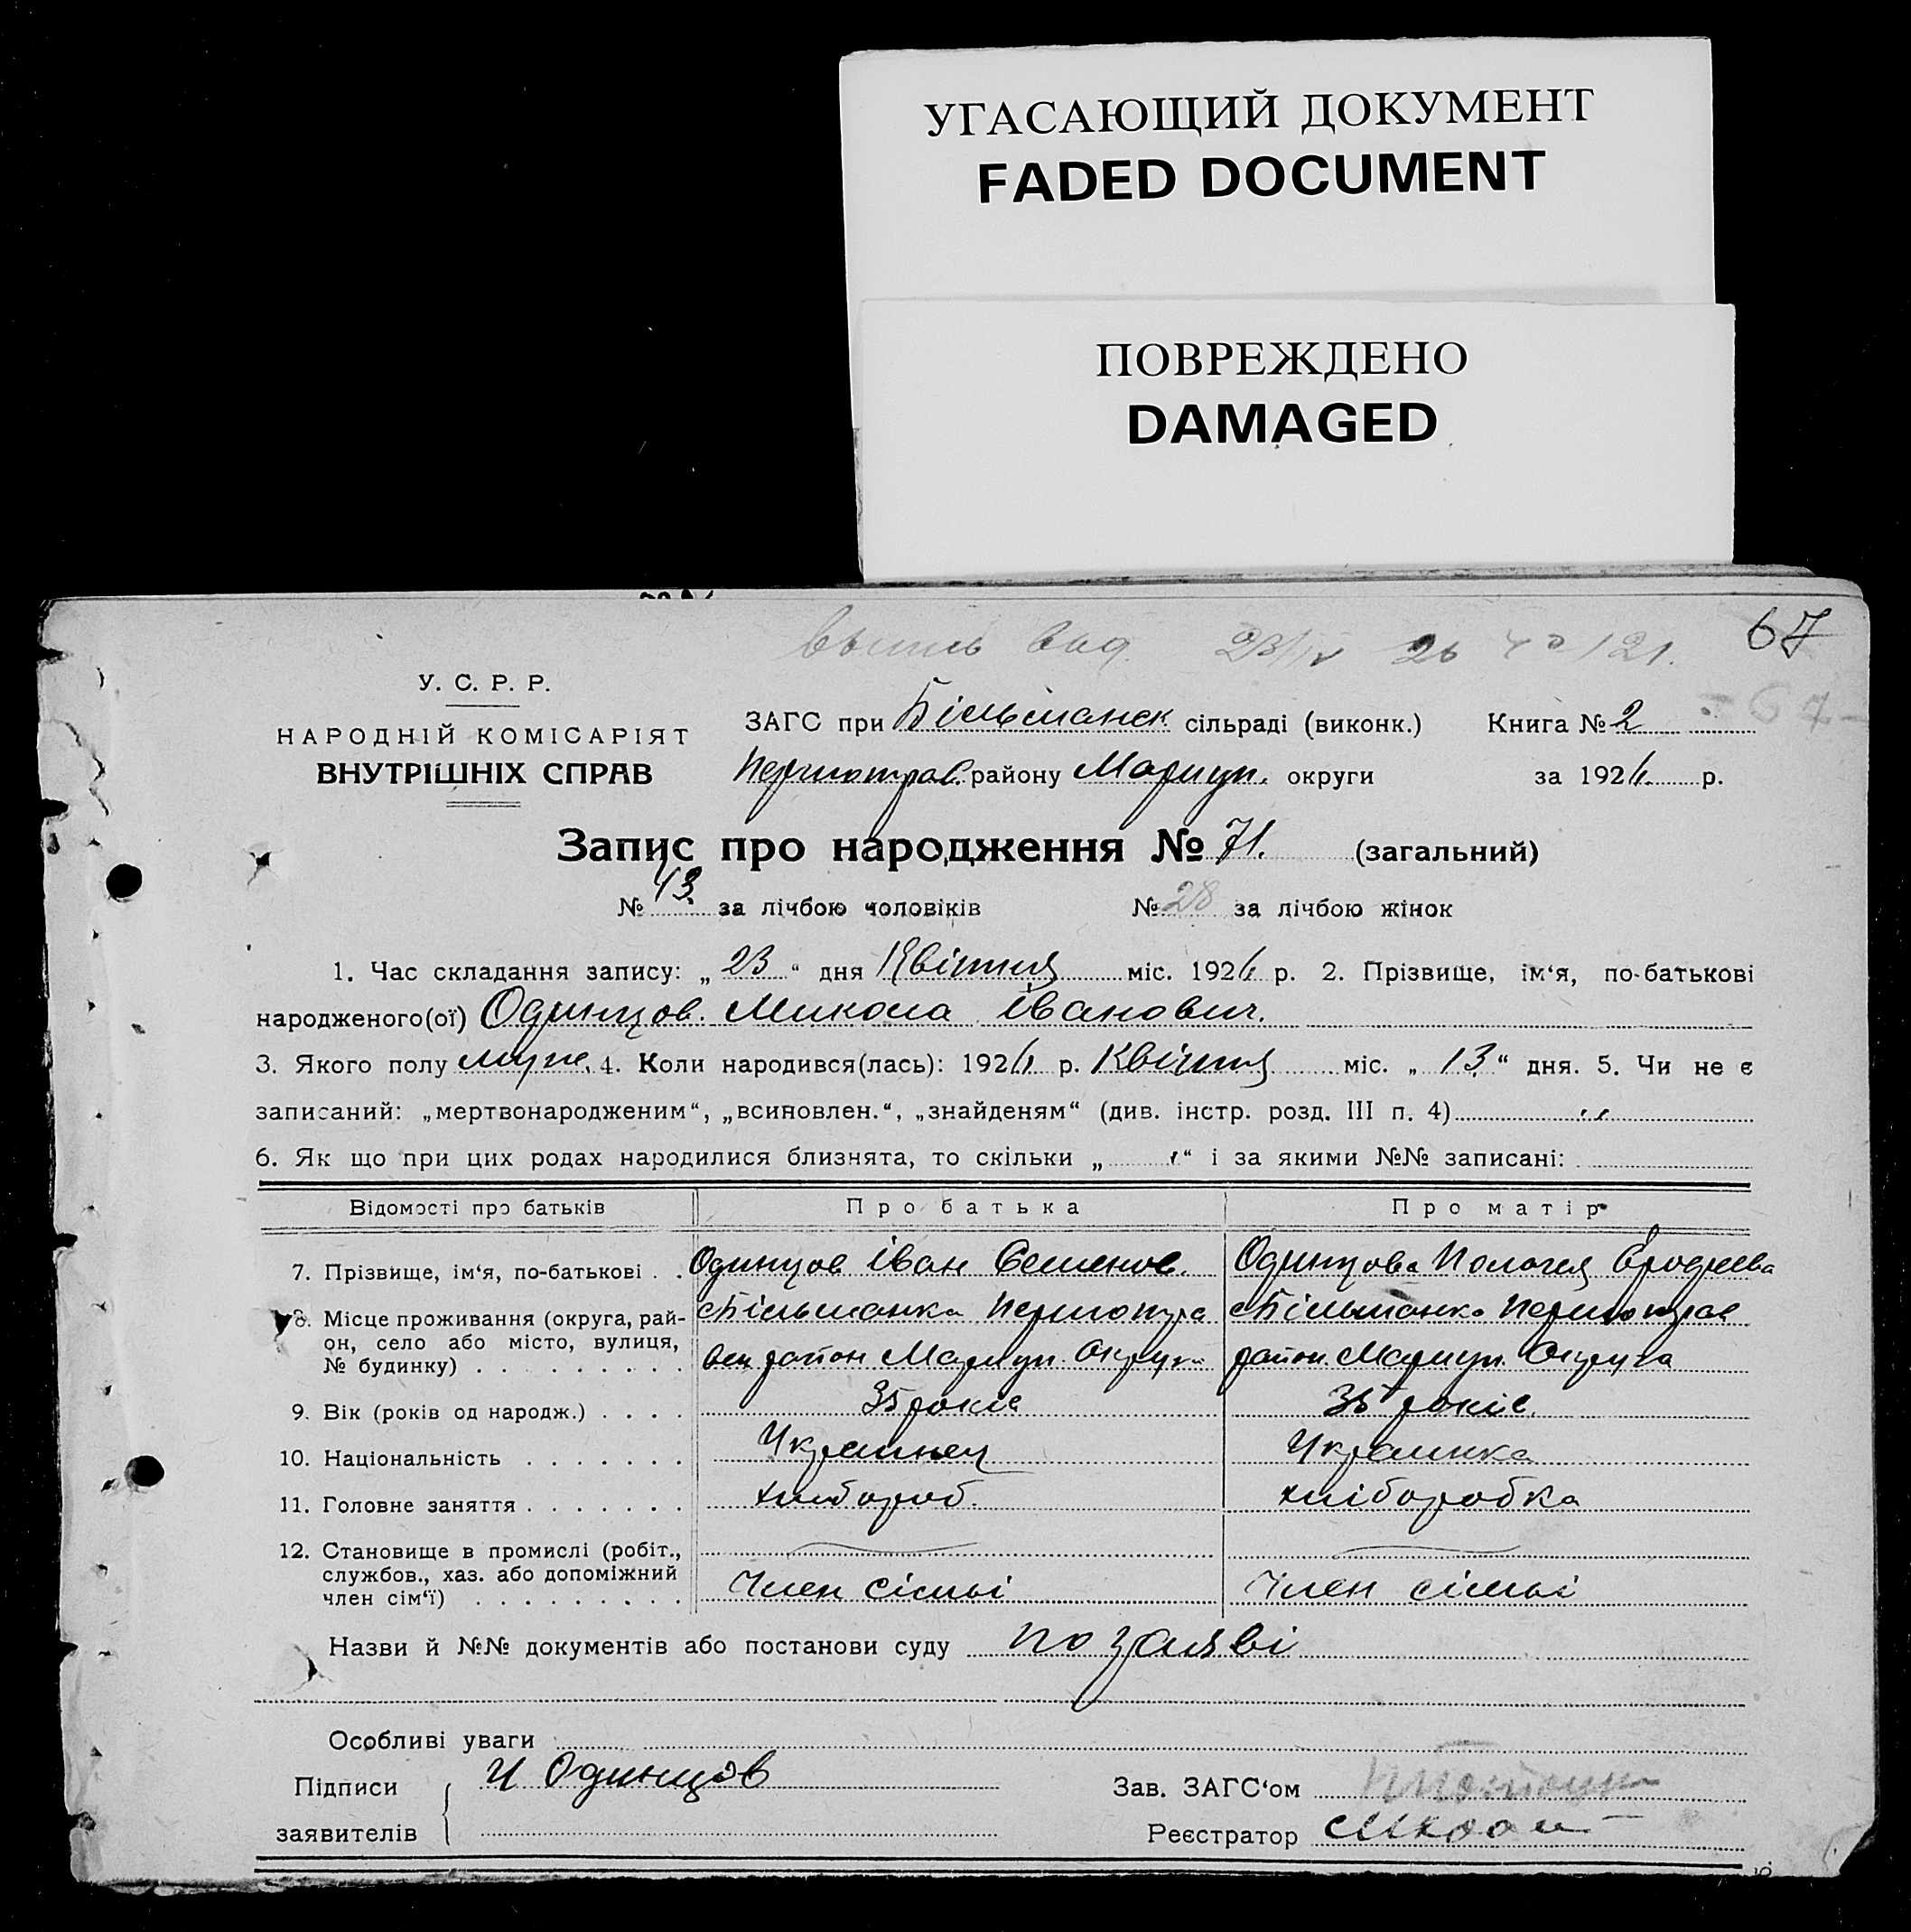 УГАСАЮЩИЙ ДОКУМЕНТ
FADED DOCUMENT
ПОВРЕЖДЕНО
DAMAGED
23/IV 26 № 121. 67
У. С. Р. Р.
НАРОДНІЙ КОМІСАРІЯТ
ВНУТРІШНІХ СПРАВ
ЗАГС при Більманск сільраді (виконк.) Книга № 2
Першотрав. району Мариуп. округи за 1926 р.
Запис про народження № 71. (загальний)
№ 43 за лічбою чоловіків № 28 за лічбою жінок
1. Час складання запису: „ 23 “ дня Квітня міс. 1926 р. 2. Прізвище, ім‘я, по-батькові
народженого(ої) Одинцов. Микола Іванович.
3. Якого полу муж. 4. Коли народився(лась): 1926 р. Квітня міс. „ 13 “ дня. 5. Чи не є
записаний: „мертвонародженим“, „всиновлен.“, „знайденям“ (див. інстр. розд. III п. 4)
6. Як що при цих родах народилися близнята, то скільки „ “ і за якими №№ записані:
Відомості про батьків Про батька Про матір
7. Прізвище, ім‘я, по-батькові . . Одинцов Іван Семенов. Одинцова Пологея
8. Місце проживання (округа, район, село або місто, вулиця, № будинку) . . . . . . . . . Більманка Першотра вец район Мариуп. Округи Більманка Першотрав район Мариуп. Округа
9. Вік (років од народж.) . . . . 35 років 35 років.
10. Національність . . . . . . . Украинец Украинка
11. Головне заняття . . . . . . . хлібороб. хліборобка
12. Становище в промислі (робіт., службов., хаз. або допоміжний член сім‘ї) . . . . . . . . . Член сімьі Член сімьі
Назви й №№ документів або постанови суду по заяві
Особливі уваги
Підписи И Одинцов Зав. ЗАГС‘ом
заявителів Реєстратор